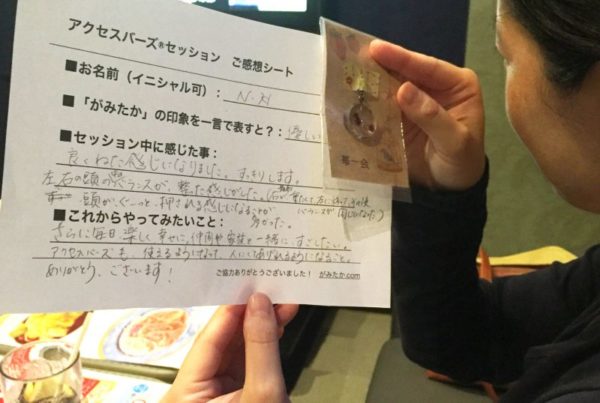 アクセスバーズ®セッション ご感想シート
■お名前（イニシャル可）： N・H
■「がみたか」の印象を一言で表すと？：優しい
■セッション中に感じた事：
良くねた感じになりました。すっきりします。
左右の頭のバランスが、整った感じがした。
頭が、ぐーっと、押される感じになることが多かった。
■これからやってみたいこと：
さらに毎日、楽しく幸せに、仲間や家族と一緒に、すごしたい。
アクセスバーズも、使えるようになって、人にしてあげれるようになること。
ありがとう、ございます！
ご協力ありがとうございました！ がみたか.com